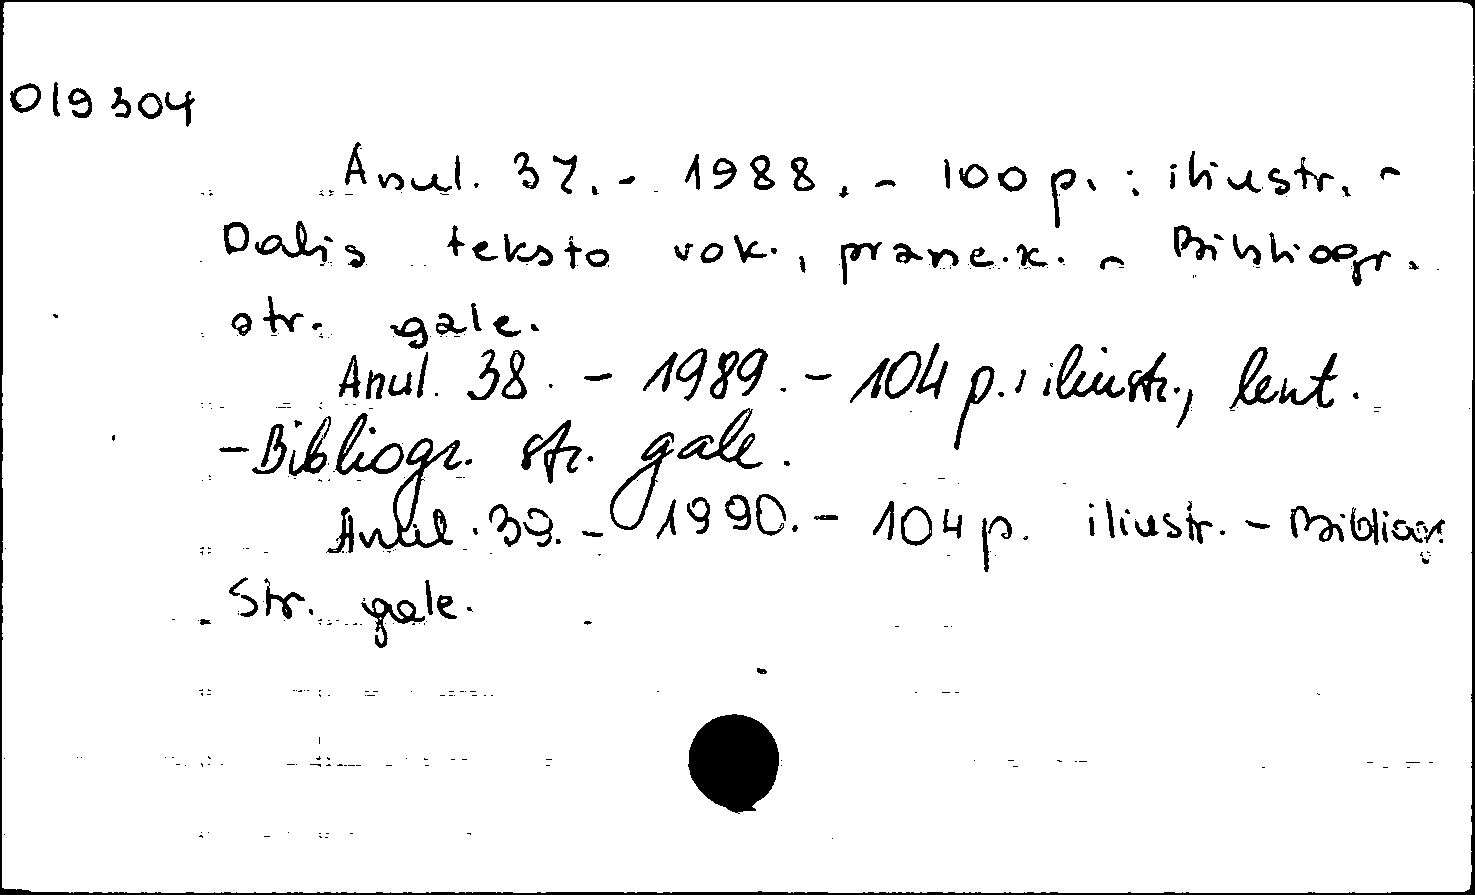 019304
Anul. 37. - 1988. - 100 p. : iliustr. -
Dalis teksto vok., pranc.k. - Bibliogr.
str. gale.
Anul. 38. - 1989. - 104 p.: iliustr., lent.
- Bibliogr. str. gale.
Anul. 39. - 1990. - 104 p. iliustr. - Bibliogr.
Str. gale.